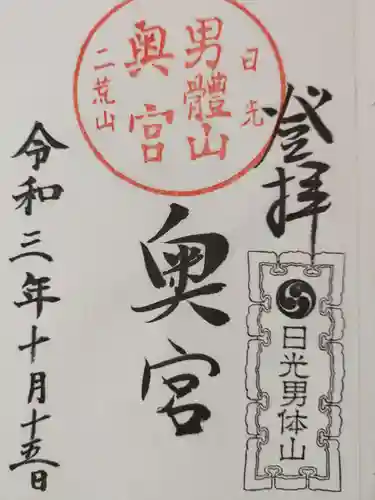 登拝
日光男体山
日光
男體山
奥宮
二荒山
奥宮
令和三年十月十五日